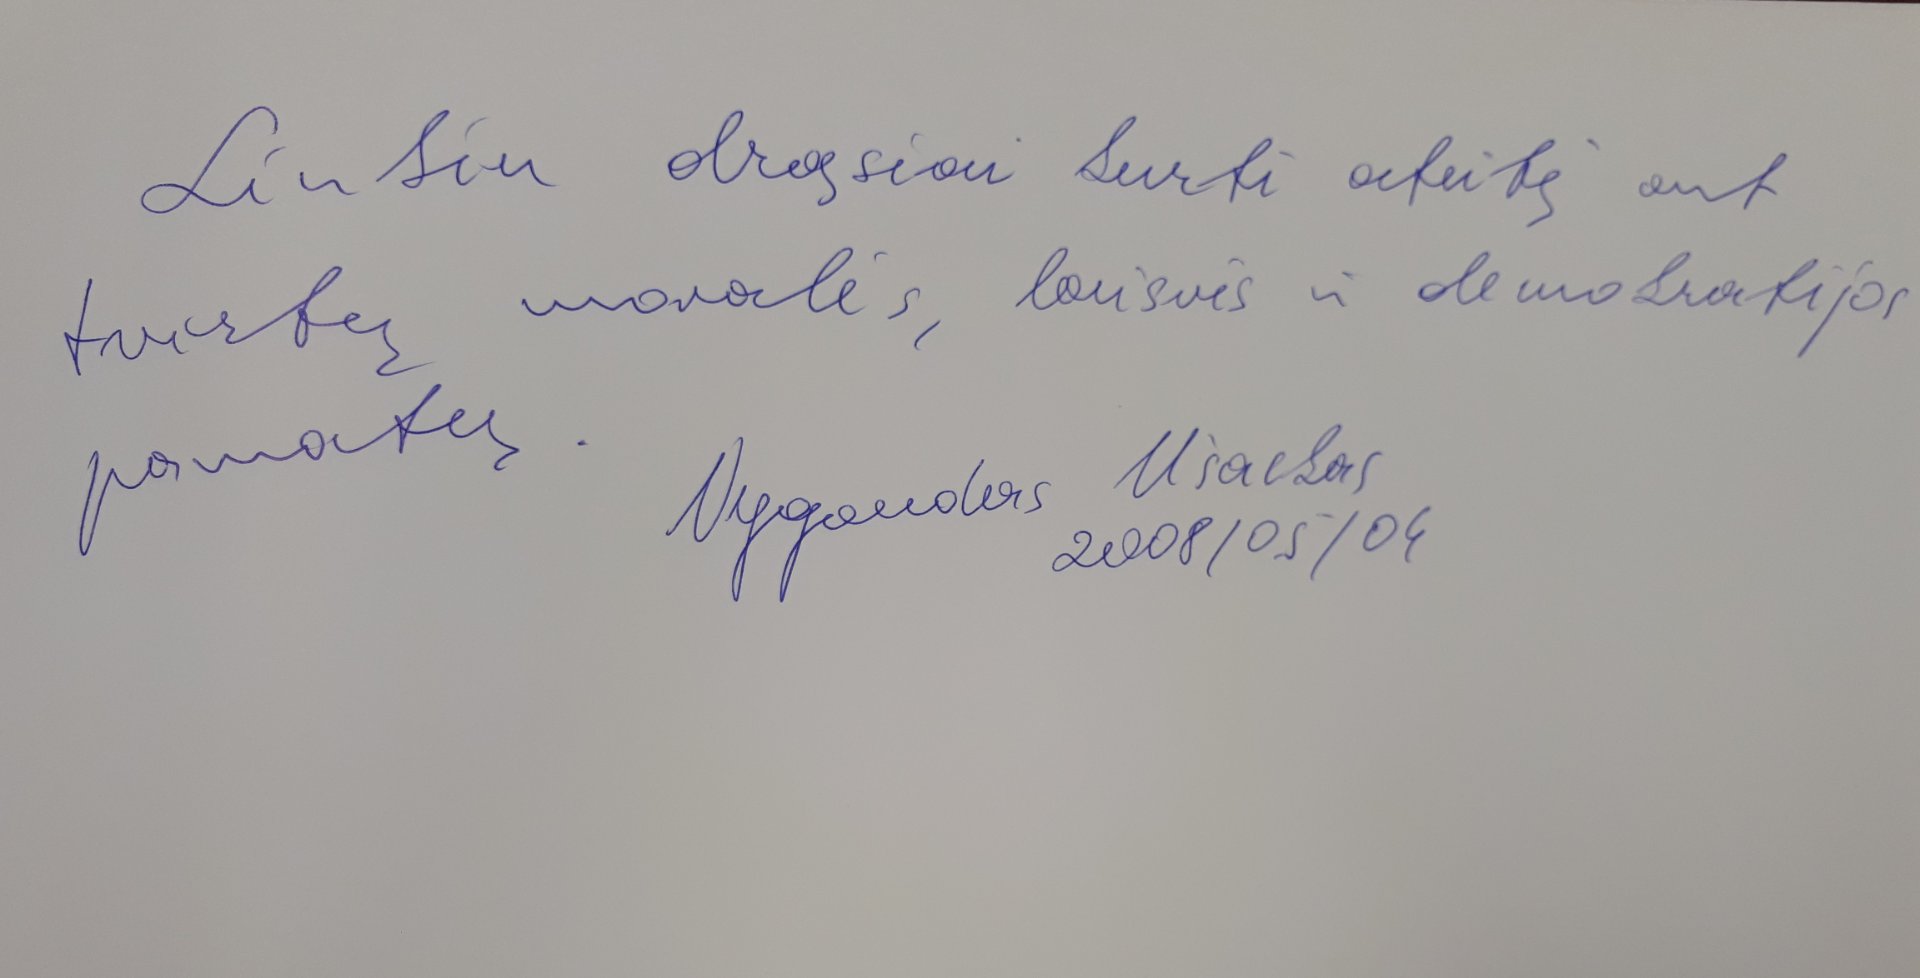 Linkiu drąsiai kurti ateitį ant
tvirtų moralės, laisvės ir demokratijos
pamatų.
Vygaudas Ušackas
2008/05/04